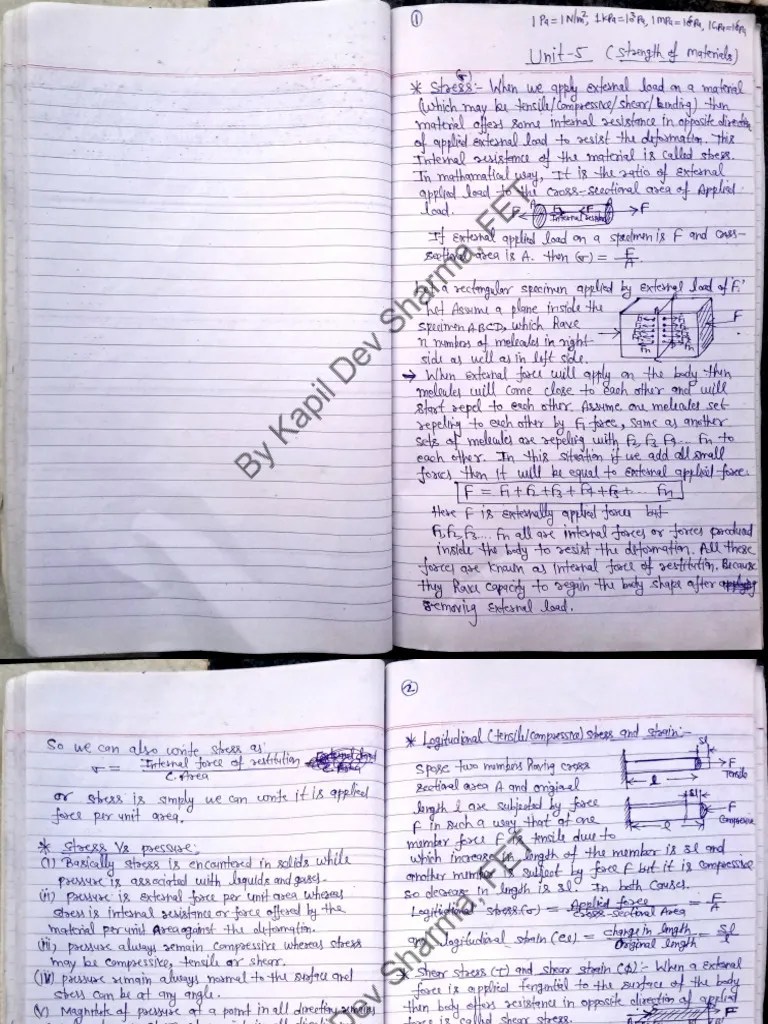 1
1 Pa = 1 N/m², 1 kPa = 10³ Pa, 1 mPa = 10⁶ Pa, 1 GPa = 10⁹ Pa
Unit-5 (Strength of materials)
* Stress (σ):- When we apply external load on a material
(which may be tensile/compressive/shear/bending) then
material offers some internal resistance in opposite direction
of applied external load to resist the deformation. This
Internal resistance of the material is called stress.
In mathamatical way, It is the ratio of external
applied load to the cross-sectional area of applied
load.
F Internal resist F
If External applied load on a specimen is F and cross-
sectional area is A. then (σ) = F/A
a rectangular specimen applied by external load of 'F'.
Let Assume a plane inside the
specimen ABCD, which have
n numbers of molecules in right
side as well as in left side.
F
→ When external force will apply on the body then
molecules will come close to each other and will
start repel to each other. Assume one molecules set
repeling to each other by F1 force, same as another
sets of molecules are repeling with F2, F3 F4... Fn to
each other. In this situation if we add all small
forces then it will be equal to external applied force.
F = F1+F2+F3+F4+F5+... Fn
Here F is externally applied forces but
F1, F2, F3... Fn all are internal forces or forces produced
inside the body to resist the deformation. All these
forces are known as internal force of restitution. Because
they have capacity to regain the body shape after
removing external load.
By Kapil Dev Sharma, FET
So we can also write stress as
σ = Internal force of restitution / C. Area
or stress is simply we can write it is applied
force per unit area.
* Stress Vs pressure:
(i) Basically stress is encountered in solids while
pressure is associated with liquids and gases.
(ii) pressure is external force per unit area whereas
stress is internal resistance or force offered by the
material per unit Area against the deformation.
(iii) pressure always remain compressive whereas stress
may be compressive, tensile or shear.
(iv) pressure remain always normal to the surface and
stress can be at any angle.
(v) Magnitute of pressure at a point in all direction remains
2
* Logitudional (tensile/compressive) stress and strain:-
Spose two members having cross
sectional area A and original
length l are subjected by force
F in such a way that at one
member force F is tensile due to
which increase in length of the member is δl and
another member is subject by force F but it is compressive
so decrease in length is δl. In both Causes.
δl
F
l
Tensile
δl
F
l
Compressive
Logitudional stress (σ) = Applied force / Cross-sectional Area = F/A
and logitudional strain (el) = change in length / Original length = δl/l
* Shear stress (τ) and shear strain (ϕ):- When a External
force is applied tengential to the surface of the body
then body offers resistance in opposite direction of applied
force is called shear stress.
F
Dev Sharma, FET